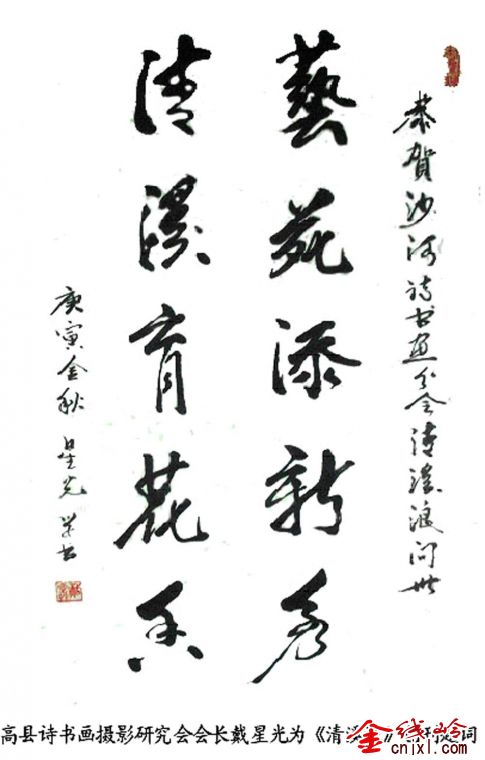 恭贺沙河诗书画分会清溪浪问世
藝苑添新秀
清溪育花香
庚寅金秋 星光 学书
高县诗书画摄影研究会会长戴星光为《清溪》题词
金线岭
cnjxl.com